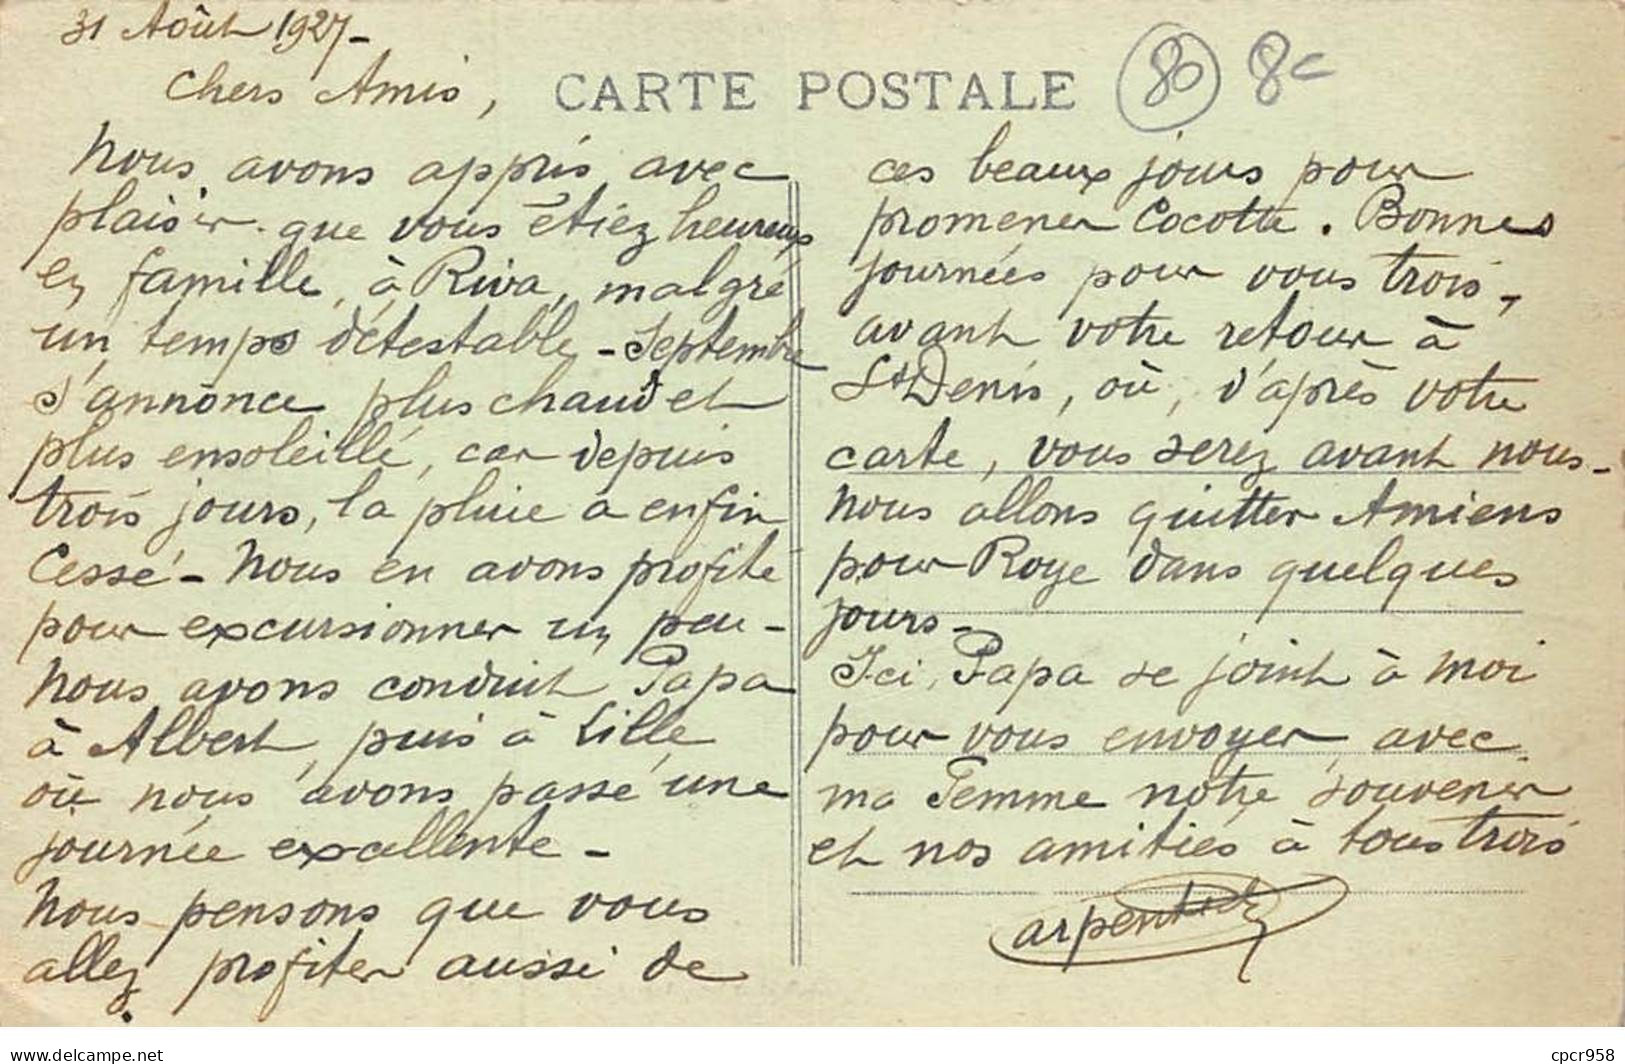 31 Août 1927-
Chers Amis,
CARTE POSTALE
80 8c
Nous avons appris avec
plaisir que vous étiez heureux
en famille, à Riva, malgré
un temps détestable - Septembre
s'annonce plus chaud et
plus ensoleillé, car depuis
trois jours, la pluie a enfin
Cessé - Nous en avons profité
pour excursionner un peu -
Nous avons conduit Papa
à Albert, puis à Lille
où nous avons passé une
journée excellente -
Nous pensons que vous
allez profiter aussi de
ces beaux jours pour
promener Cocotte. Bonnes
journées pour vous trois,
avant votre retour à
St Denis, où, d'après votre
carte, vous serez avant nous-
Nous allons quitter Amiens
pour Roye dans quelques
jours -
Ici, Papa se joint à moi
pour vous envoyer, avec
ma Femme notre souvenir
et nos amitiés à tous trois
delcampe.net
cpcr958